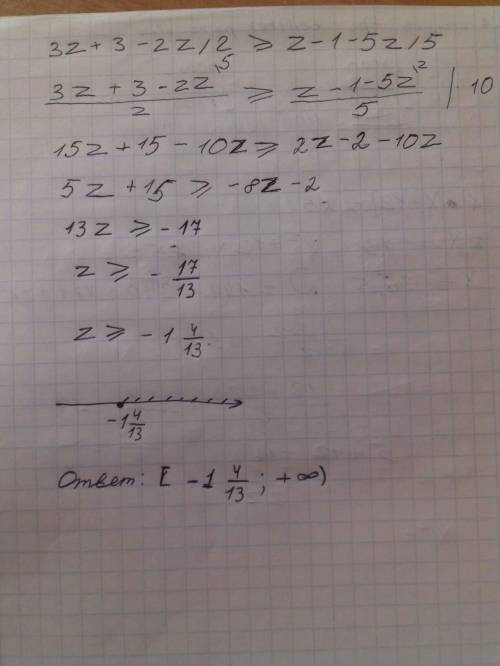 3z + 3 - 2z/2 ⩾ z - 1 - 5z/5
(3z + 3 - 2z)/2 \5 ⩾ (z - 1 - 5z)/5 \2 | · 10
15z + 15 - 10z ⩾ 2z - 2 - 10z
5z + 15 ⩾ -8z - 2
13z ⩾ -17
z ⩾ - 17/13
z ⩾ - 1 4/13
-1 4/13
Ответ: [ -1 4/13 ; +∞)